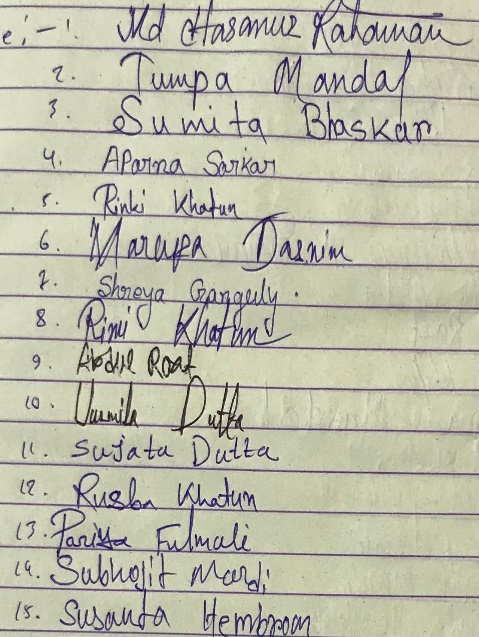 e:-1. Md Hasanuz Rahaman
2. Tumpa Mandal
3. Sumita Bhaskar
4. Aparna Sarkar
5. Rinki Khatun
6. Tasnim
7. Shreya Ganguly.
8. Rimi Khatun
9. Abdul Roaf
10. Urmila Dutta
11. Sujata Dutta
12. Rusba Khatun
13. Fulmali
14. Subhojit Mardi
15. Susanta Hembrom